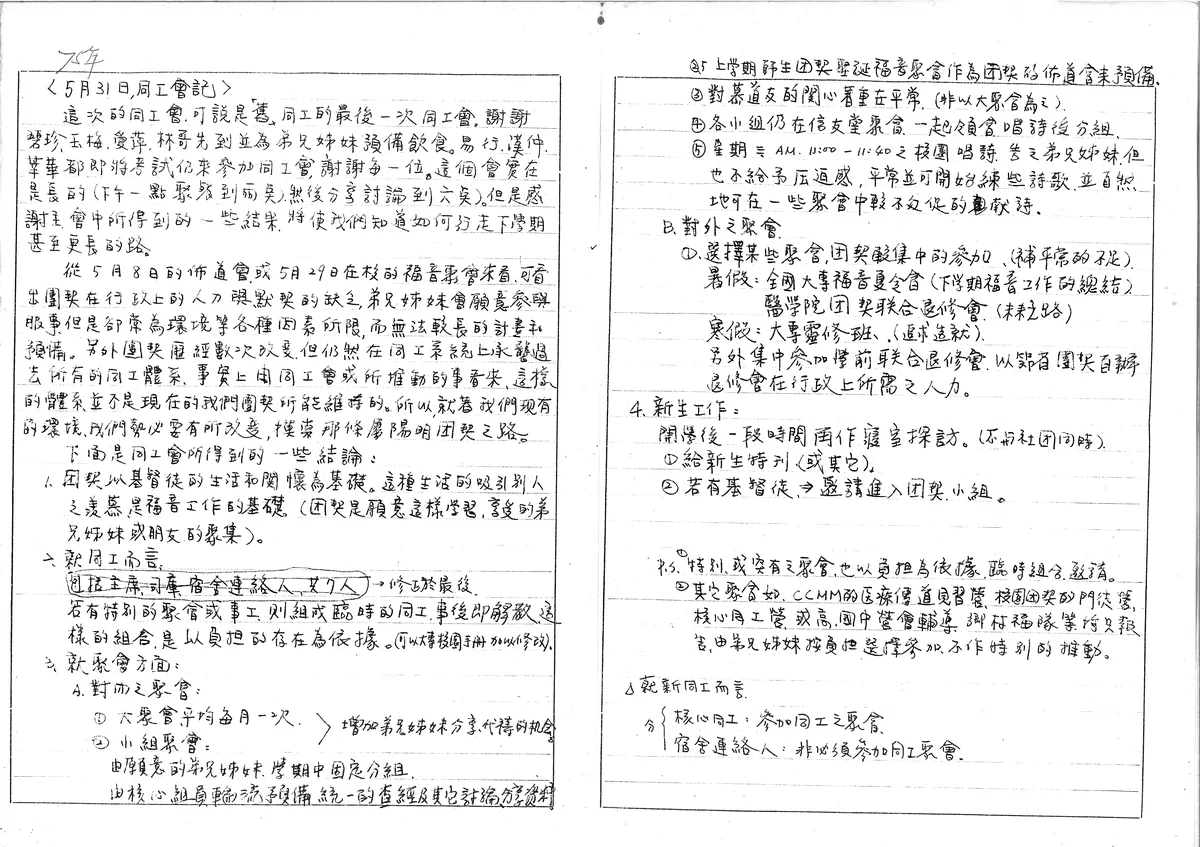 75年
〈5月31日,同工會記〉
這次的同工會,可說是「舊」同工的最後一次同工會。謝謝
碧珍、玉梅、愛萍、林哥先到並為弟兄姊妹預備飲食。易行、漢仲、
華華都即將考試仍來參加同工會,謝謝每一位。這個會實在
是長的(下午一點聚餐到兩點,然後分享討論到六點)。但是感
謝主,會中所得到的一些結果,將使我們知道如何行走下學期
甚至更長的路。
從5月8日的佈道會或5月29日在校的福音聚會來看,可看
出團契在行政上的人力與默契的缺乏,弟兄姊妹會願意參與
服事,但是卻常為環境等各種因素所限,而無法較長的計畫和
預備。另外團契歷經數次改變,但仍然在同工系統上承襲過
去所有的同工體系、事實上由同工會或所推動的事看來,這樣
的體系並不是現在的我們團契所能維持的。所以就著我們現有
的環境、我們勢必要有所改變,摸索那條屬陽明團契之路。
下面是同工會所得到的一些結論:
1. 团契以基督徒的生活和関懷為基礎。這種生活的吸引別人
之羨慕,是福音工作的基礎。(团契是願意這樣學習,享受的弟
兄姊妹或朋友的聚集)。
二、就同工而言,
包括主席,司庫,宿舍連絡人,共7人→修正於最後.
若有特別的聚會或事工,則組成臨時的同工,事後即解散,這
樣的組合,是以負担的存在為依據。(可以本書校園手册加以修改).
三、就聚會方面:
A. 對內之聚會:
① 大聚會平均每月一次.
② 小組聚會:
〉增加弟兄姊妹分享代禱的机会
由願意的弟兄姊妹,學期中固定分組.
由核心組員輪流預備統一的查經及其它討論分享資料
②.5 上學期師生团契聖誕福音聚會作為团契的佈道會來預備.
③ 對慕道友的関心著重在平常.(非以大聚會為主).
④ 各小組仍在信友堂聚會,一起領會唱詩後分組.
⑤ 星期三 AM. 11:00-11:40之校園唱詩,告之弟兄姊妹,但
也不給予压迫感,平常並可開始練些詩歌,並自然
地可在一些聚會中較不匆促的獻詩.
B. 對外之聚會.
①. 選擇某些聚會,团契較集中的參加、(補平常的不足).
暑假:全國大專福音夏令會(下學期福音工作的總結).
醫學院团契联合退修會.(未來之路)
寒假:大專靈修班、(追求造就).
另外集中參加學前联合退修會.以節省团契自辦
退修會在行政上所需之人力。
4. 新生工作:
開學後一段時間再作寢室探訪。(不與社团同時).
① 給新生特刊(或其它)。
② 若有基督徒,⇒邀請進入团契,小組。
P.S. ①特別或突有之聚會,也以負担為依據,臨時組合,邀請。
②其它聚會如,CCMM的医療傳道見習營,校園团契的門徒營,
核心同工營或高、國中營會輔導,鄉村福隊等皆只報
告,由弟兄姊妹按負担選擇參加,不作特別的推動。
△ 就新同工而言.
分{核心同工:參加同工之聚會.
宿舍連絡人:非必須參加同工聚會.